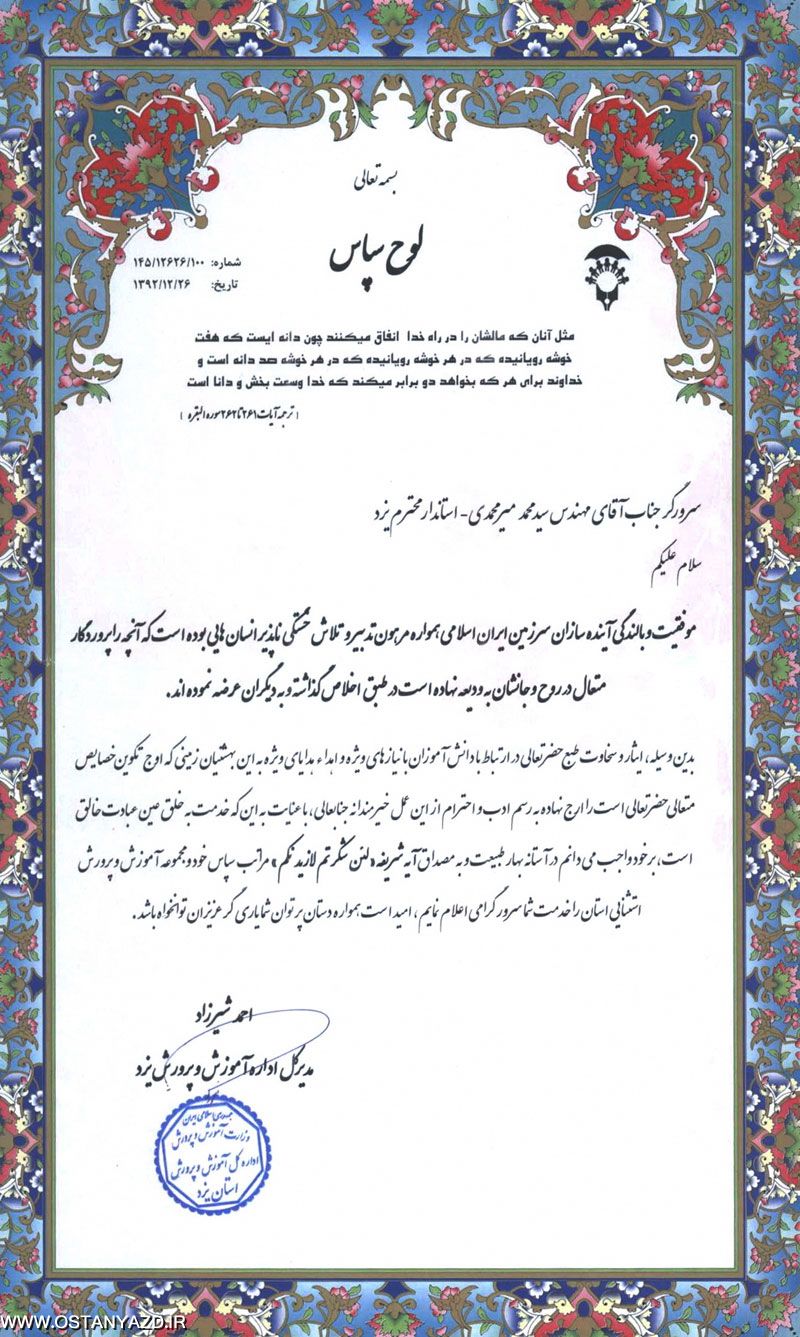 بسمه تعالی
لوح سپاس
شماره: ۱۴۵/۱۲۶۲۶/۱۰۰
تاریخ: ۱۳۹۲/۱۲/۲۶
مثل آنان که مالشان را در راه خدا انفاق میکنند چون دانه ایست که هفت
خوشه رویانیده که در هر خوشه رویانیده که در هر خوشه صد دانه است و
خداوند برای هر که بخواهد دو برابر میکند که خدا وسعت بخش و دانا است
( ترجمه آیات ۲۶۱ تا ۲۶۲ سوره البقره )
سرورگر جناب آقای مهندس سید محمد میرمحمدی - استاندار محترم یزد
سلام علیکم
موفقیت و بالندگی آینده سازان سرزمین ایران اسلامی همواره مرهون تدبیر و تلاش خستگی ناپذیر انسان هایی بوده است که آنچه را پروردگار
متعال در روح و جانشان به ودیعه نهاده است در طبق اخلاص گذاشته و به دیگران عرضه نموده اند.
بدین وسیله، ایثار و سخاوت طبع حضرتعالی در ارتباط با دانش آموزان با نیازهای ویژه و اهداء هدایای ویژه به این بهشتیان زمینی که اوج تکوین خصایص
متعالی حضرتعالی است را ارج نهاده به رسم ادب و احترام از این عمل خیرمندانه جنابعالی، با عنایت به این که خدمت به خلق عین عبادت خالق
است، بر خود واجب می دانم در آستانه بهار طبیعت و به مصداق آیه شریفه « لئن شکرتم لازیدنکم » مراتب سپاس خود و مجموعه آموزش و پرورش
استثنایی استان را خدمت شما سرور گرامی اعلام نمایم ، امید است همواره دستان پرتوان شما یاری گر عزیزان توانخواه باشد.
احمد شیرزاد
مدیرکل اداره آموزش و پرورش یزد
جمهوری اسلامی ایران
وزارت آموزش و پرورش
اداره کل آموزش و پرورش
استان یزد
WWW.OSTANYAZD.IR